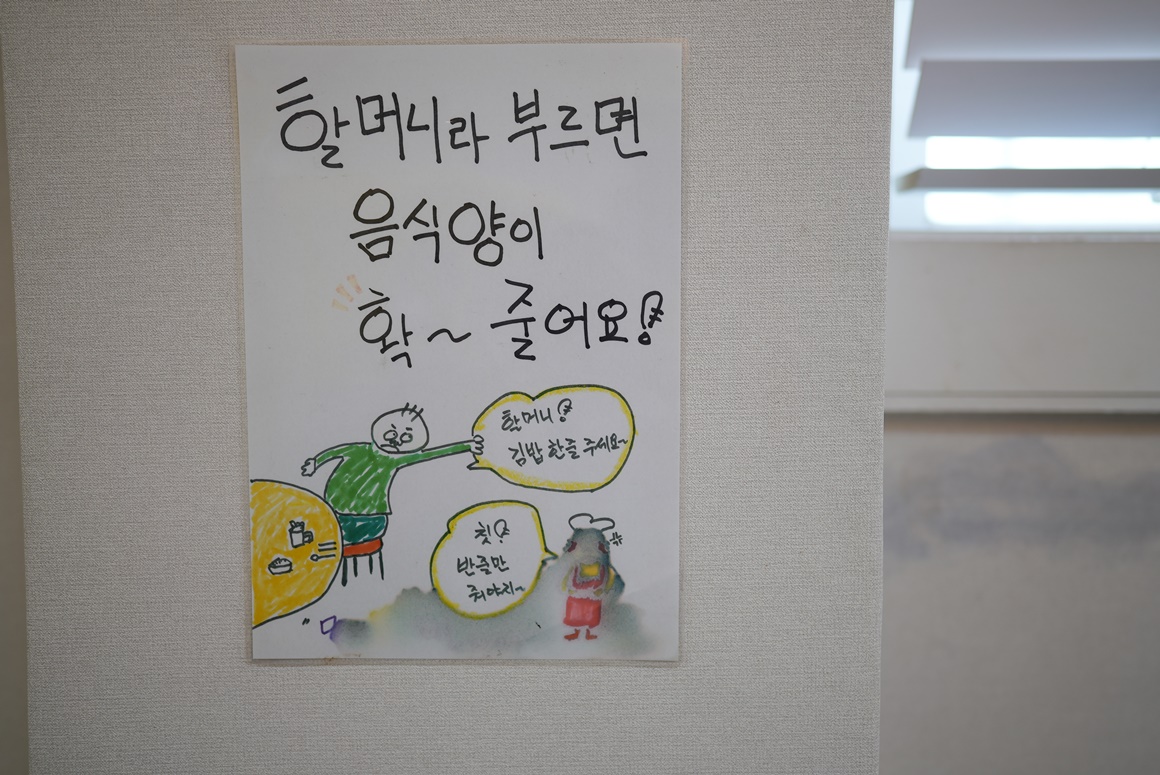 할머니라 부르면
음식양이
확~ 줄어요!
할머니!
김밥 한줄 주세요~
칫!
반줄만
줘야지~